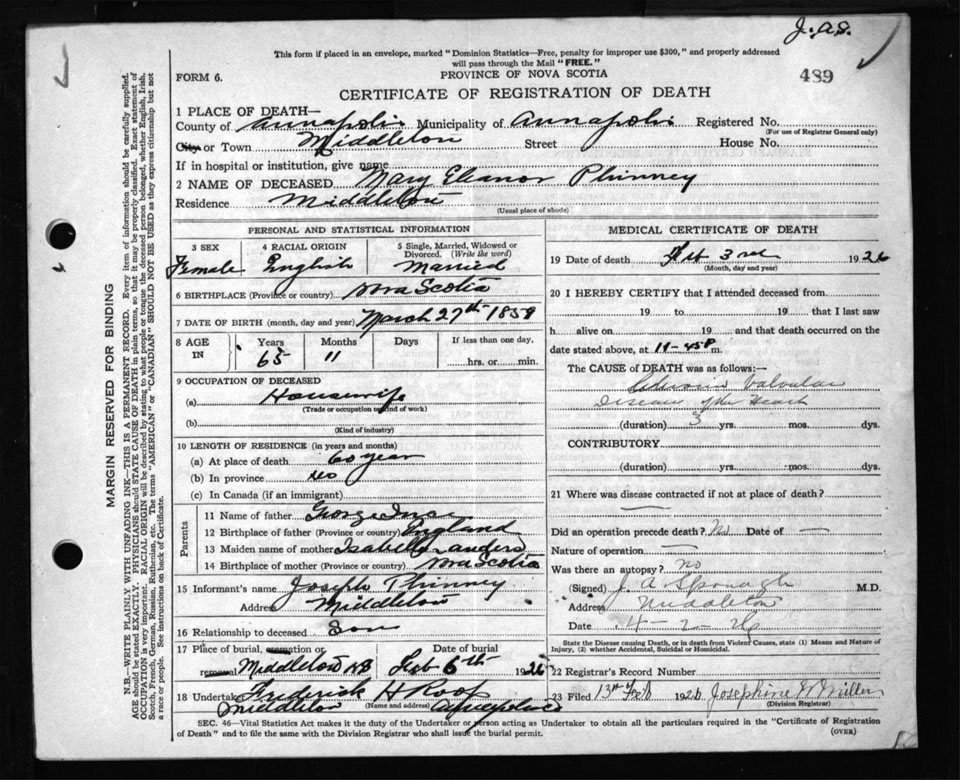 J. A. S.
This form if placed in an envelope, marked "Dominion Statistics—Free, penalty for improper use $300," and properly addressed
will pass through the Mail "FREE."
FORM 6.
PROVINCE OF NOVA SCOTIA
489
CERTIFICATE OF REGISTRATION OF DEATH
1 PLACE OF DEATH—
County of Annapolis Municipality of Annapolis Registered No.
(For use of Registrar General only)
City or Town Middleton Street House No.
If in hospital or institution, give name
2 NAME OF DECEASED Mary Eleanor Phinney
Residence Middleton
(Usual place of abode)
PERSONAL AND STATISTICAL INFORMATION
3 SEX 4 RACIAL ORIGIN 5 Single, Married, Widowed or Divorced. (Write the word)
Female English Married
6 BIRTHPLACE (Province or country) Nova Scotia
7 DATE OF BIRTH (month, day and year) March 27th 1859
8 AGE IN Years Months Days If less than one day,
65 11 hrs. or min.
9 OCCUPATION OF DECEASED
(a) Housewife
(Trade or occupation or kind of work)
(b)
(Kind of industry)
10 LENGTH OF RESIDENCE (in years and months)
(a) At place of death 60 year
(b) In province
(c) In Canada (if an immigrant)
Parents
11 Name of father George
12 Birthplace of father (Province or country) England
13 Maiden name of mother Isabella
14 Birthplace of mother (Province or country) Nova Scotia
15 Informant's name Joseph Phinney
Address Middleton
16 Relationship to deceased Son
17 Place of burial, cremation or removal Date of burial
Middleton Feb 6th 1926
18 Undertaker Frederick H Roop
Middleton (Name and address)
MEDICAL CERTIFICATE OF DEATH
19 Date of death Feb 3rd 1926
(Month, day and year)
20 I HEREBY CERTIFY that I attended deceased from
19 to 19 that I last saw
h alive on 19 and that death occurred on
date stated above, at 11-45 P m.
The CAUSE of DEATH was as follows:—
Valvular
Disease of the Heart
(duration) 3 yrs. mos. dys.
CONTRIBUTORY
(duration) yrs. mos. dys.
21 Where was disease contracted if not at place of death?
Did an operation precede death? No Date of —
Nature of operation —
Was there an autopsy? No
(Signed) J. A. Sponagle M.D.
Address Middleton
Date 4-2-26
State the Disease causing Death, or in death from Violent Causes, state (1) Means and Nature of
Injury, (2) whether Accidental, Suicidal or Homicidal.
22 Registrar's Record Number
23 Filed 13th Feb 1926 Josephine W Miller
(Division Registrar)
SEC. 46—Vital Statistics Act makes it the duty of the Undertaker or person acting as Undertaker to obtain all the particulars required in the "Certificate of Registration
of Death" and to file the same with the Division Registrar who shall issue the burial permit. (OVER)
MARGIN RESERVED FOR BINDING
N.B.—WRITE PLAINLY WITH UNFADING INK—THIS IS A PERMANENT RECORD. Every item of information should be carefully supplied.
AGE should be stated EXACTLY. PHYSICIANS should STATE CAUSE OF DEATH in plain terms, so that it may be properly classified. Exact statement of
OCCUPATION is very important. RACIAL ORIGIN will be described by stating to what people or tongue the deceased person belonged, whether English, Irish,
Scotch, French, German, Russian, Ruthenian, etc. The terms "AMERICAN" or "CANADIAN" SHOULD NOT BE USED as they express citizenship but not
a race or people. See instructions on back of Certificate.